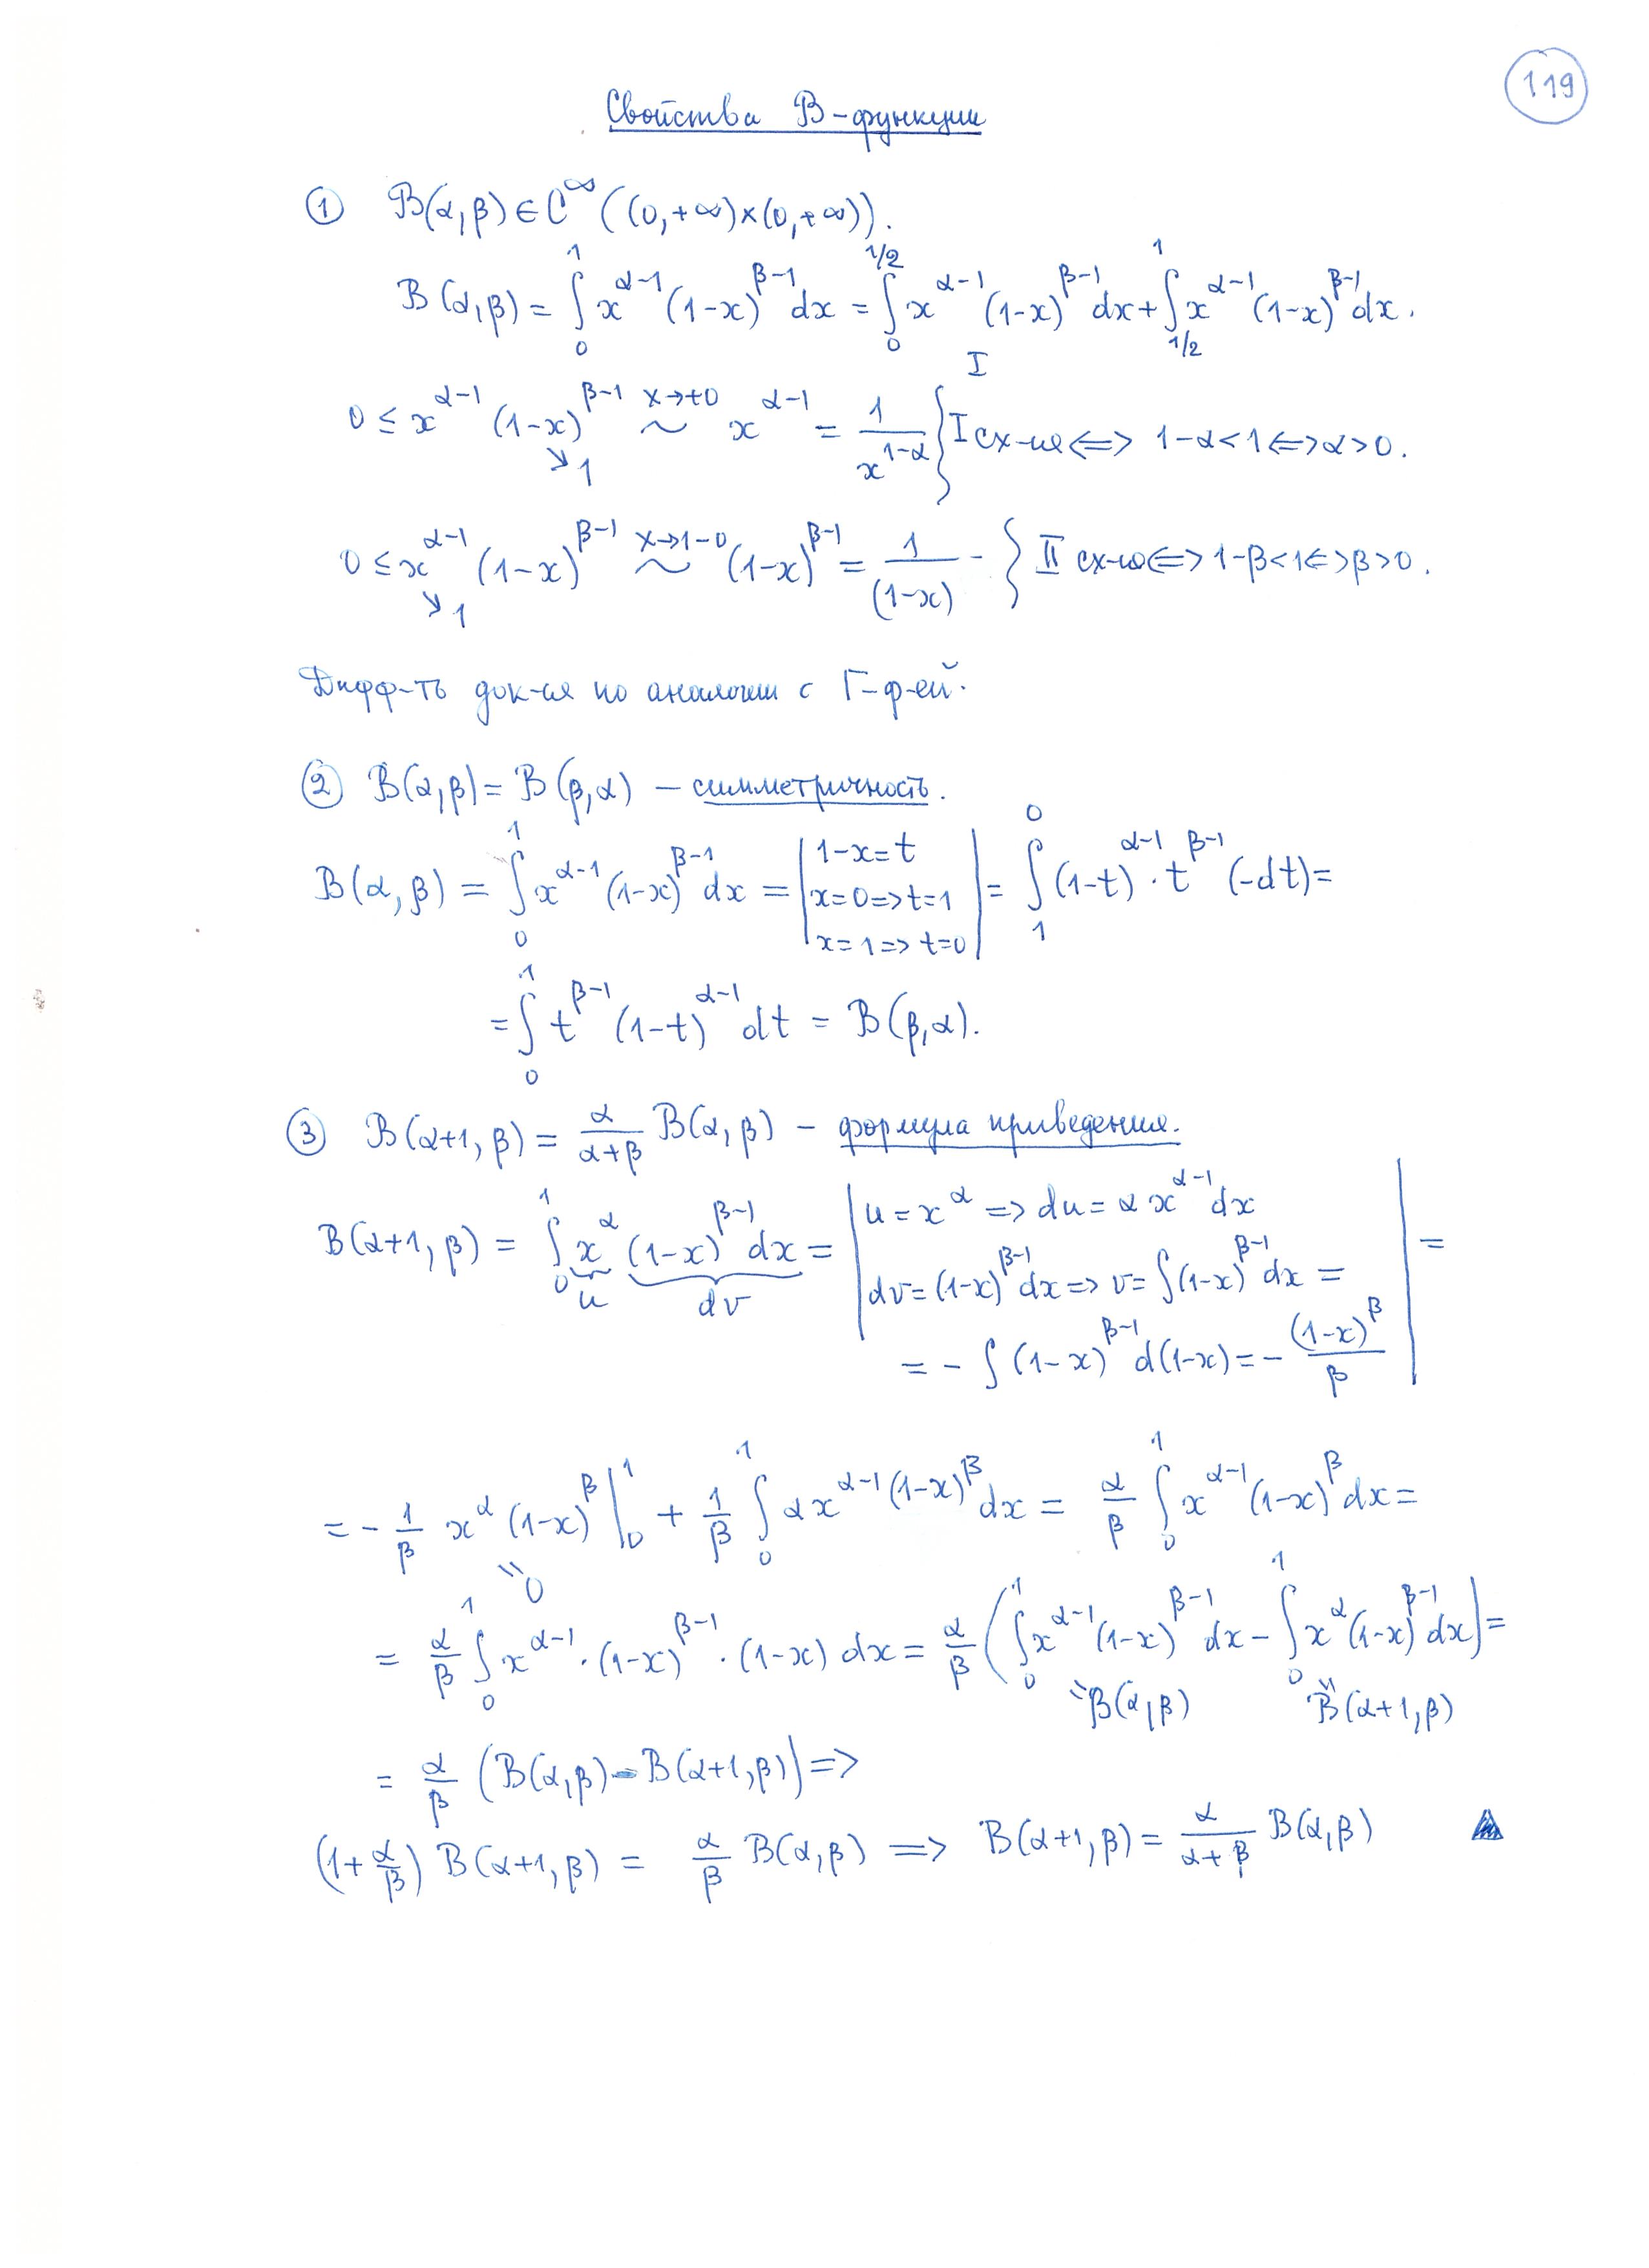 119
Свойства B-функции
① B(α,β) ∈ C^∞ ((0,+∞)×(0,+∞)).
B(α,β) = ∫_0^1 x^{α-1} (1-x)^{β-1} dx = ∫_0^{1/2} x^{α-1} (1-x)^{β-1} dx + ∫_{1/2}^1 x^{α-1} (1-x)^{β-1} dx.
I
0 ≤ x^{α-1} (1-x)^{β-1} ~^{x→+0} x^{α-1} = 1/x^{1-α} } I сх-ся <=> 1-α<1 <=> α>0.
↘1
0 ≤ x^{α-1} (1-x)^{β-1} ~^{x→1-0} (1-x)^{β-1} = 1/(1-x) - } II сх-ся <=> 1-β<1 <=> β>0.
↘1
Дифф-ть док-ся по аналогии с Г-ф-ей.
② B(α,β) = B(β,α) – симметричность.
B(α,β) = ∫_0^1 x^{α-1} (1-x)^{β-1} dx = | 1-x=t
x=0=>t=1
x=1=>t=0 | = ∫_1^0 (1-t)^{α-1} · t^{β-1} (-dt) =
= ∫_0^1 t^{β-1} (1-t)^{α-1} dt = B(β,α).
③ B(α+1,β) = α/(α+β) B(α,β) – формула приведения.
B(α+1,β) = ∫_0^1 x^α (1-x)^{β-1} dx = | u = x^α => du = α x^{α-1} dx
u dv
dv = (1-x)^{β-1} dx => v = ∫(1-x)^{β-1} dx =
= - ∫ (1-x)^{β-1} d(1-x) = - (1-x)^β/β | =
= - 1/β x^α (1-x)^β |_0^1 + 1/β ∫_0^1 α x^{α-1} (1-x)^β dx = α/β ∫_0^1 x^{α-1} (1-x)^β dx =
"0
= α/β ∫_0^1 x^{α-1} · (1-x)^{β-1} · (1-x) dx = α/β (∫_0^1 x^{α-1} (1-x)^{β-1} dx - ∫_0^1 x^α (1-x)^{β-1} dx) =
"B(α,β) "B(α+1,β)
= α/β (B(α,β) - B(α+1,β)) =>
(1+α/β) B(α+1,β) = α/β B(α,β) => B(α+1,β) = α/(α+β) B(α,β) ▲